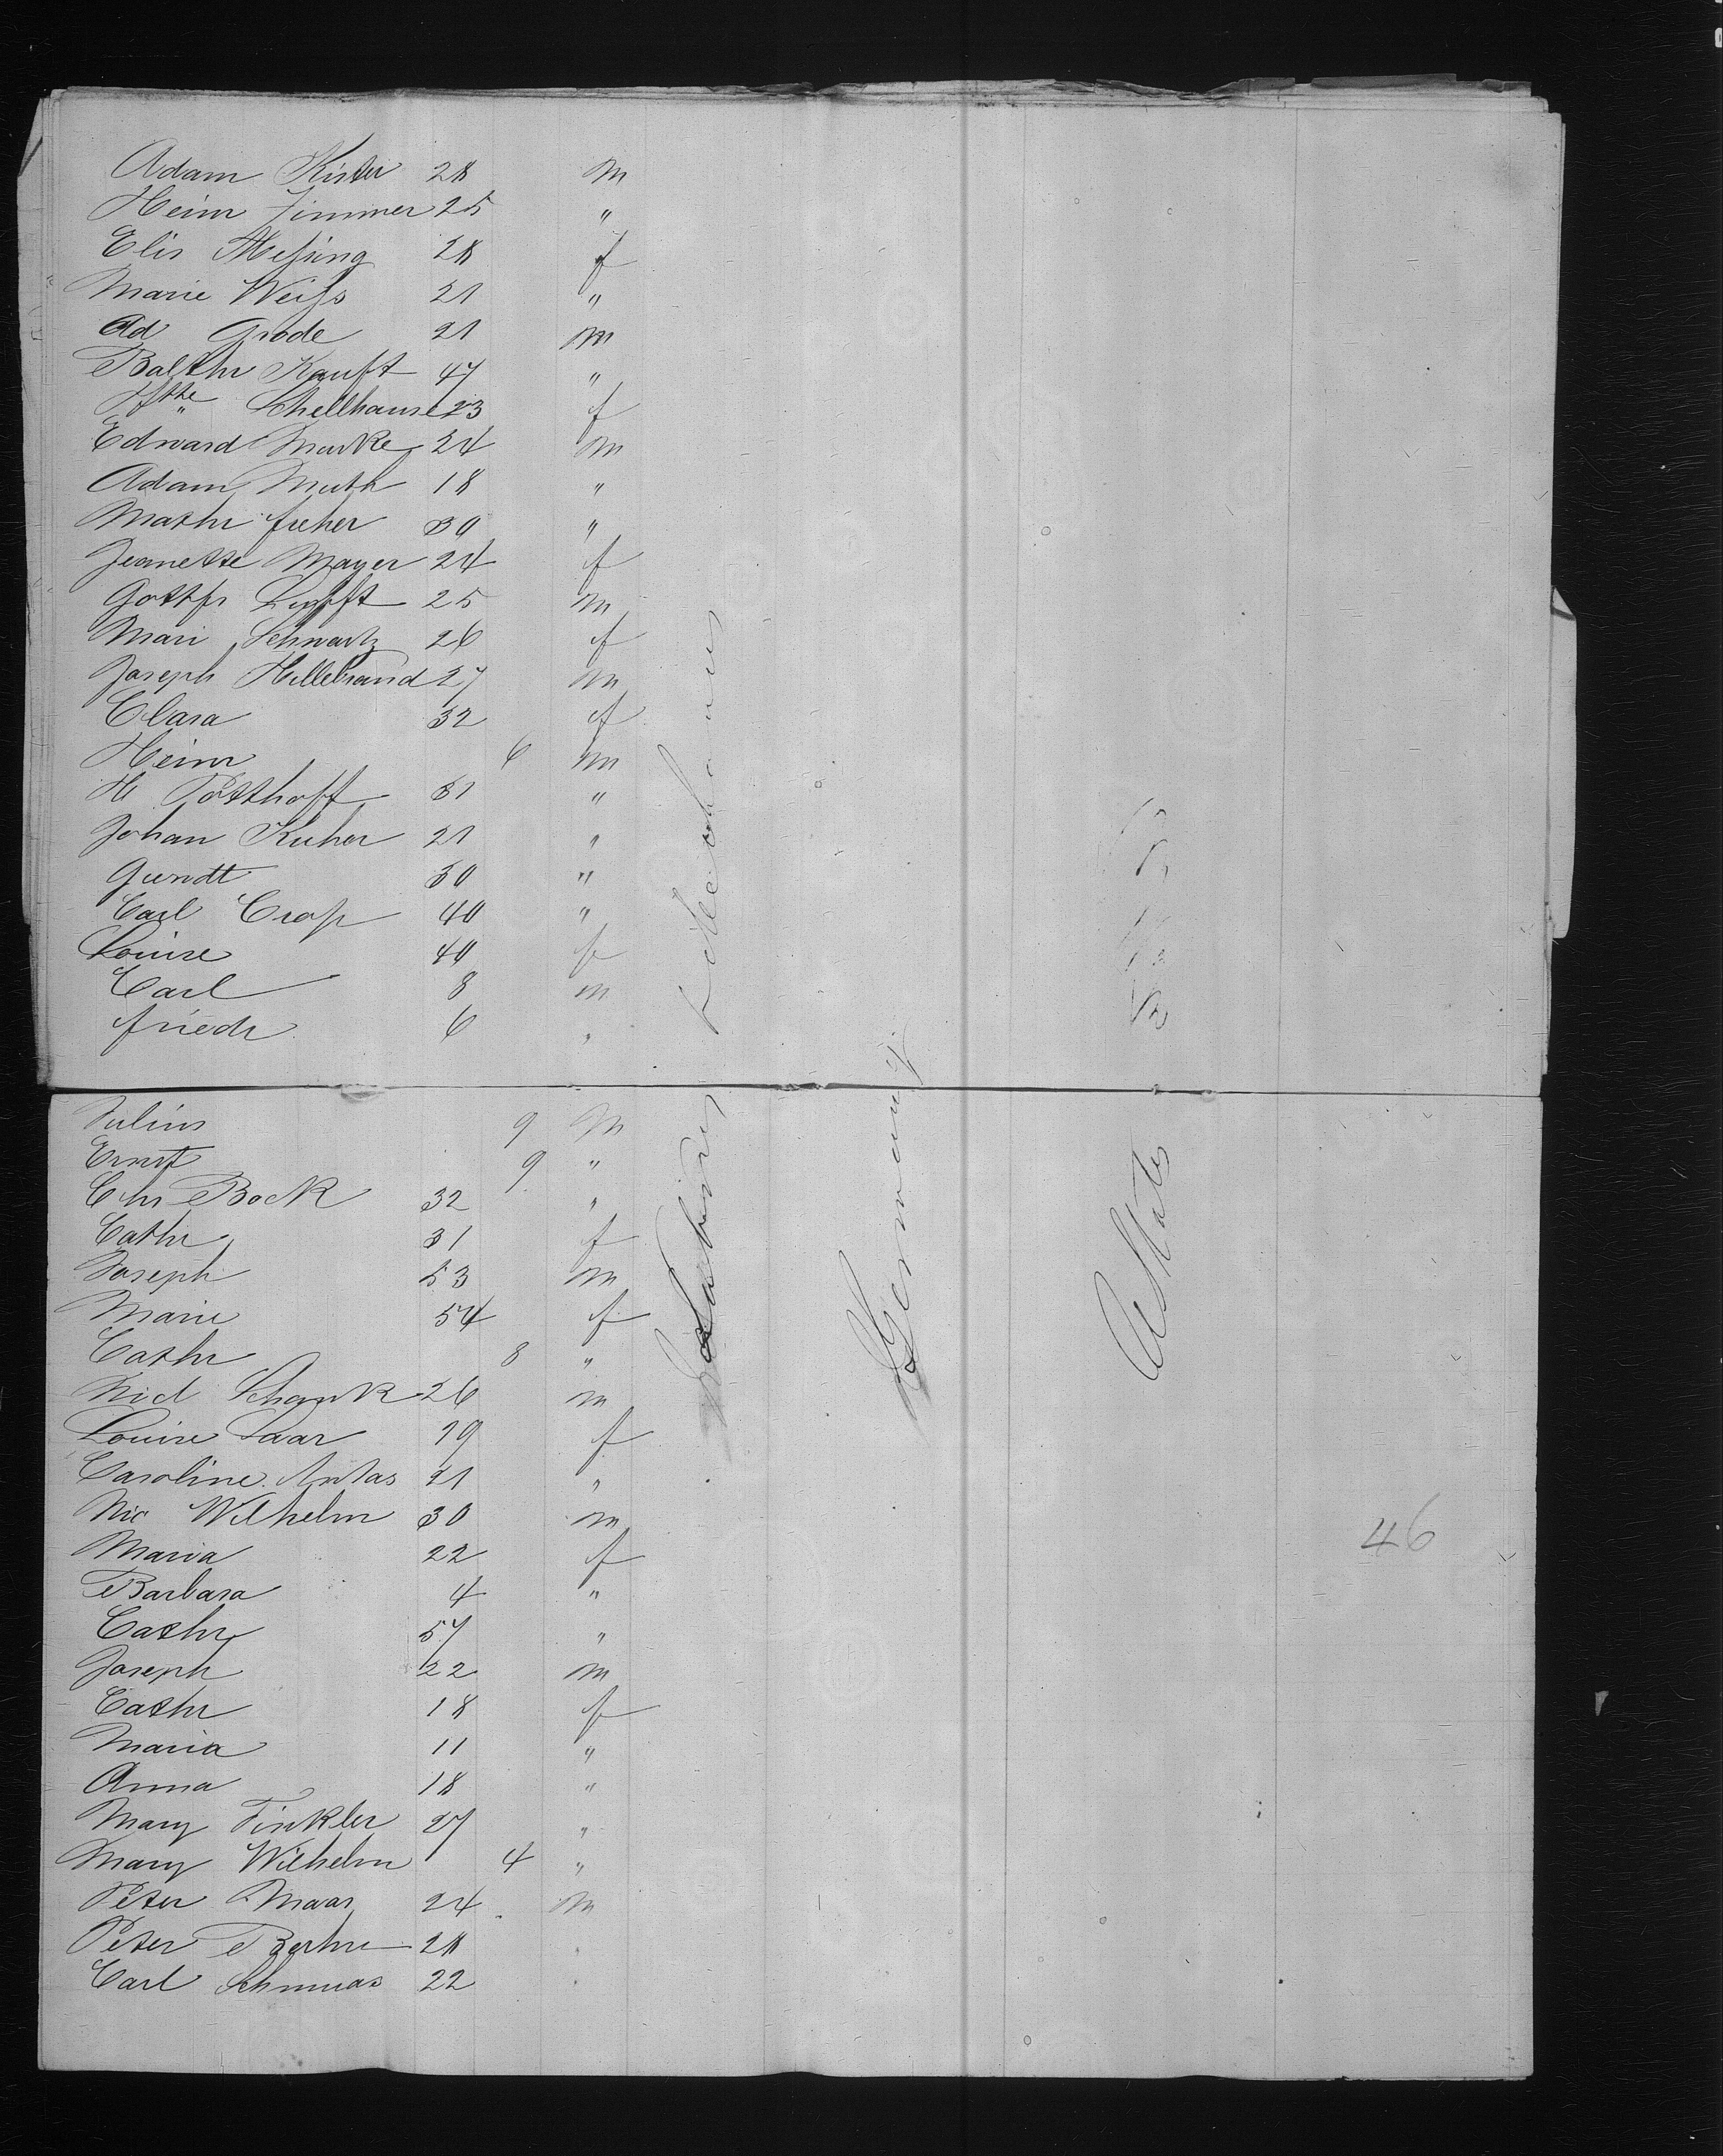 Adam Kister 28 m
Heinr Zimmer 25 "
Elis Meßing 28 f
Marie Weiß 21 "
Ad Grode 21 m
Balthr Kauft 47 "
" Schellhause 23 f
Edward Marke 24 m
Adam Muth 18 "
Mathr 30 "
Jeanette Mayer 24 f
Gottfr 25 m
Mari Schwartz 26 f
Joseph Hillebrand 27 m
Clara 32 f
Heinr 6 m
H Posthoff 31 "
Johan Kuher 21 "
Gundt 30 "
Carl Croß 40 "
Louise 40 f
Carl 8 m
friedr 6 "
Julius 9 m
Ernst 9 "
Chr Bock 32 "
Cathr 31 f
Joseph 53 m
Marie 54 f
Cathr 8 "
Nicl Schank 26 m
Louise Saar 19 f
Caroline Antas 21 "
Nic Wilhelm 30 m
Maria 22 f
Barbara 4 "
Cathr 57 "
Joseph 22 m
Cathr 18 f
Maria 11 "
Anna 18 "
Mary Finkler 27 "
Mary Wilhelm 4 "
Peter Maas 24 m
Peter 28 "
Carl Schmuas 22 "
Germany
States
46